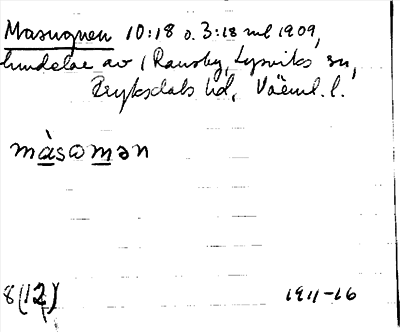 Masugnen 10:18 o. 3:18 ml 1909,
hmdelar av (Ransby, Lysviks sn,
Fryksdals hd, Värml. l.
màsɷmən
8(12)
1911-16